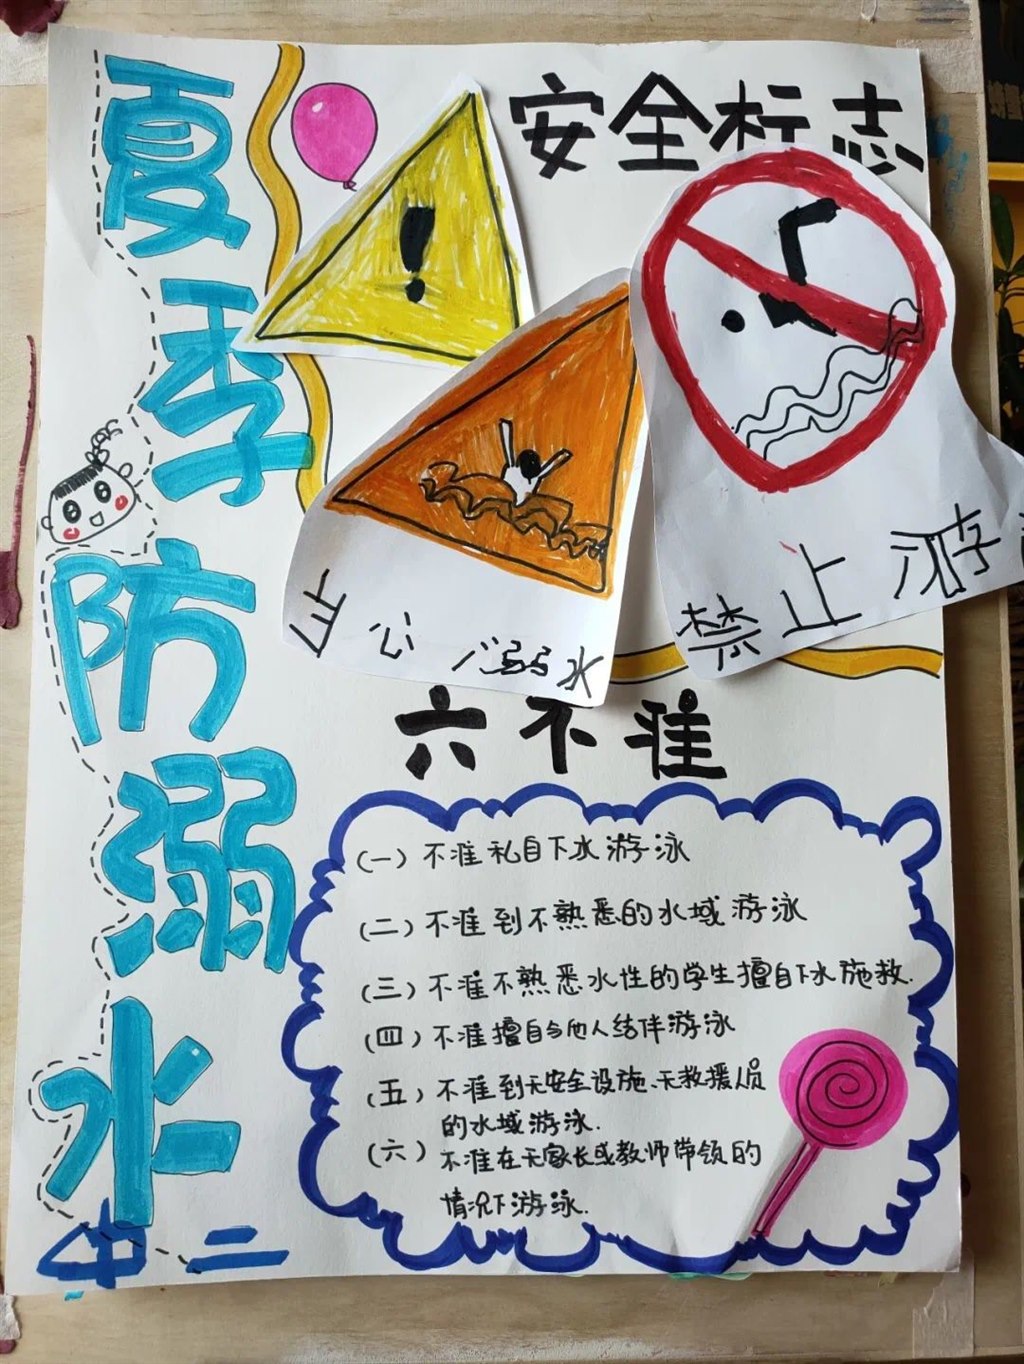 夏季防溺水
中二
安全标志
当心溺水
禁止游
六不准
(一)不准私自下水游泳
(二)不准到不熟悉的水域游泳
(三)不准不熟悉水性的学生擅自下水施救.
(四)不准擅自与他人结伴游泳
(五)不准到无安全设施、无救援人员
的水域游泳.
(六)不准在无家长或教师带领的
情况下游泳.